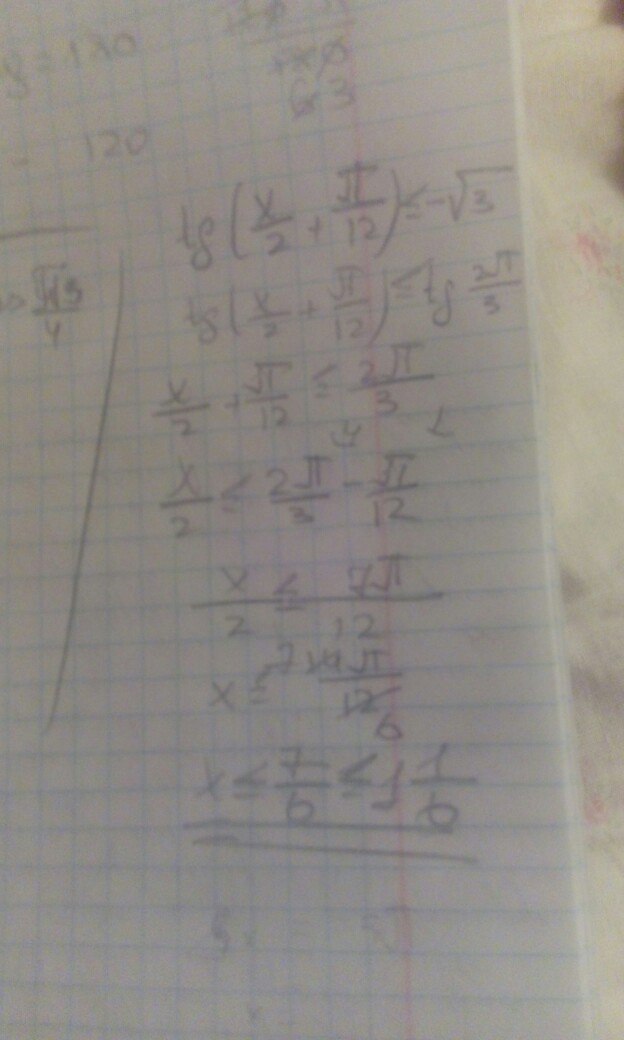 8 = 120
120
tg(x/2 + π/12) ≤ -√3
tg(x/2 + π/12) ≤ tg 2π/3
x/2 + π/12 ≤ 2π/3
x/2 ≤ 2π/3 - π/12
x/2 ≤ 7π/12
x ≤ 14π/12 6
x ≤ 7/6 ≤ 1 1/6